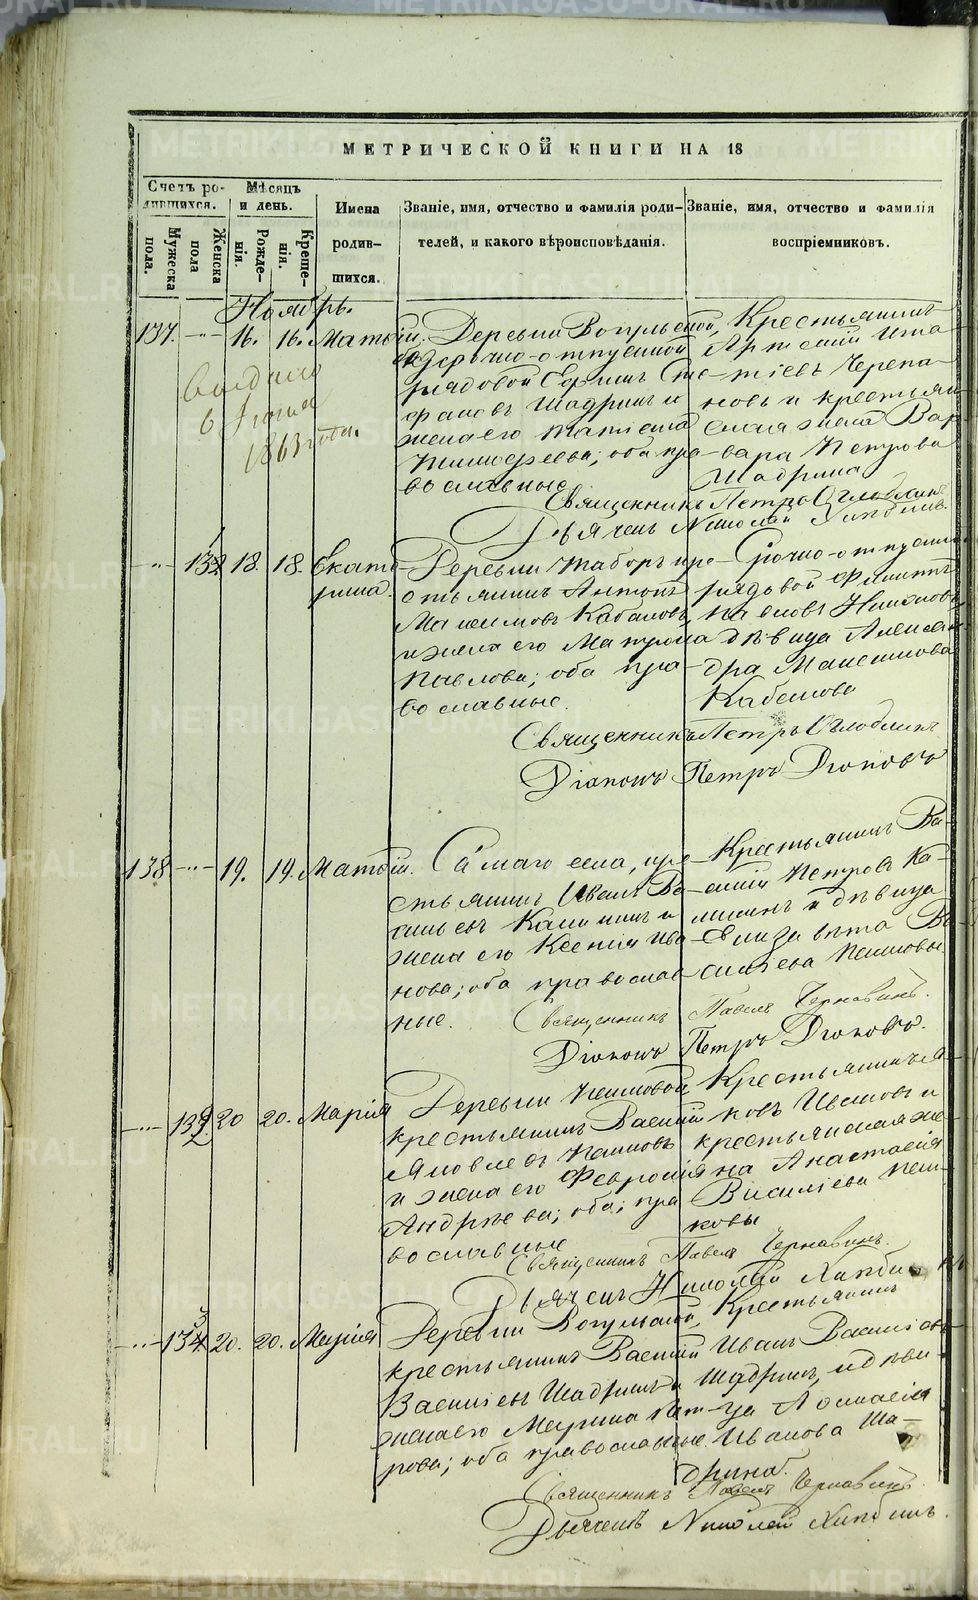 МЕТРИЧЕСКОЙ КНИГИ НА 18
Счетъ родившихся.
Мужеска пола.
Женска пола
Мѣсяцъ и день.
Рожденія.
Крещенія.
Имена родившихся.
Званіе, имя, отчество и фамилія родителей, и какого вѣроисповѣданія.
Званіе, имя, отчество и фамилія воспріемниковъ.
Ноябрь.
137. 16. 16. Матѳій.
Деревни Вогульской,
срочно-отпускной
рядовой Ефимъ Сте-
фановъ Шадринъ и
жена его Татіана
Тимофеева; оба пра-
вославные.
Крестьянинъ
Артемій
Черепа-
новъ и крестьян
жена Вар
вара Петрова
Шадрина
выдано
6 Іюня
1863 года.
Священникъ Петръ
Дьячекъ Николай
18. 18. Екате-
рина.
Деревни Таборъ кре-
стьянинъ Антонъ
Максимовъ Кабаковъ
и жена его Матрона
Павлова; оба пра-
вославные.
Срочно-отпускн
рядовой Филиппъ
Павловъ
дѣвица Алексан
дра Максимова
Кабакова
Священникъ Петръ
Діаконъ Петръ Діаковъ
138 19. 19. Матѳій.
Самаго села, кре-
стьянинъ Иванъ Ва-
сильевъ Калининъ и
жена его Ксенія Ива-
нова; оба православ-
ные.
Крестьянинъ Ва-
силій Петровъ Ка-
лининъ и дѣвица
Елизавета Ва
сильева
Священникъ Павелъ Чернавинъ.
Діаконъ Петръ Діаковъ.
20 20. Марія
Деревни Пешковой
крестьянинъ Василій
Яковлевъ Пешковъ
и жена его Февронія
Андреева; оба пра
вославные
Крестьянинъ Я
ковъ Ивановъ и
крестьянская же
на Анастасія
Васильева Пеш
ковы
Священникъ Павелъ Чернавинъ.
Дьячекъ Николай
20. 20. Марія
Деревни Вогульской,
крестьянинъ Василій
Васильевъ Шадринъ и
жена его Марина
рова; оба православные.
Крестьянинъ
Иванъ Васильевъ
Шадринъ, и дѣви-
ца
Иванова Ша-
дрина.
Священникъ Павелъ Чернавинъ
Дьячекъ Николай
METRIKI.GASO-URAL.RU